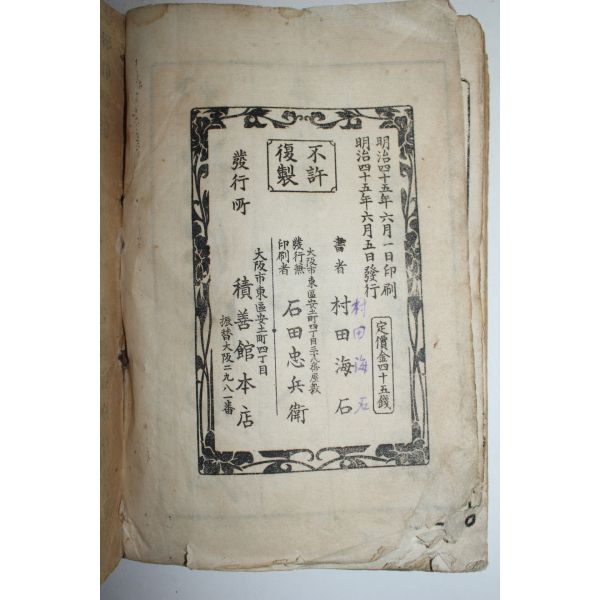 明治四十五年六月一日印刷
明治四十五年六月五日發行
定價金四十五錢
村田海石
書者 村田海石
不許復製
大阪市東區安土町四丁目三十八番屋敷
發行兼印刷者 石田忠兵衛
大阪市東區安土町四丁目
發行所 積善館本店
振替大阪二九八一番